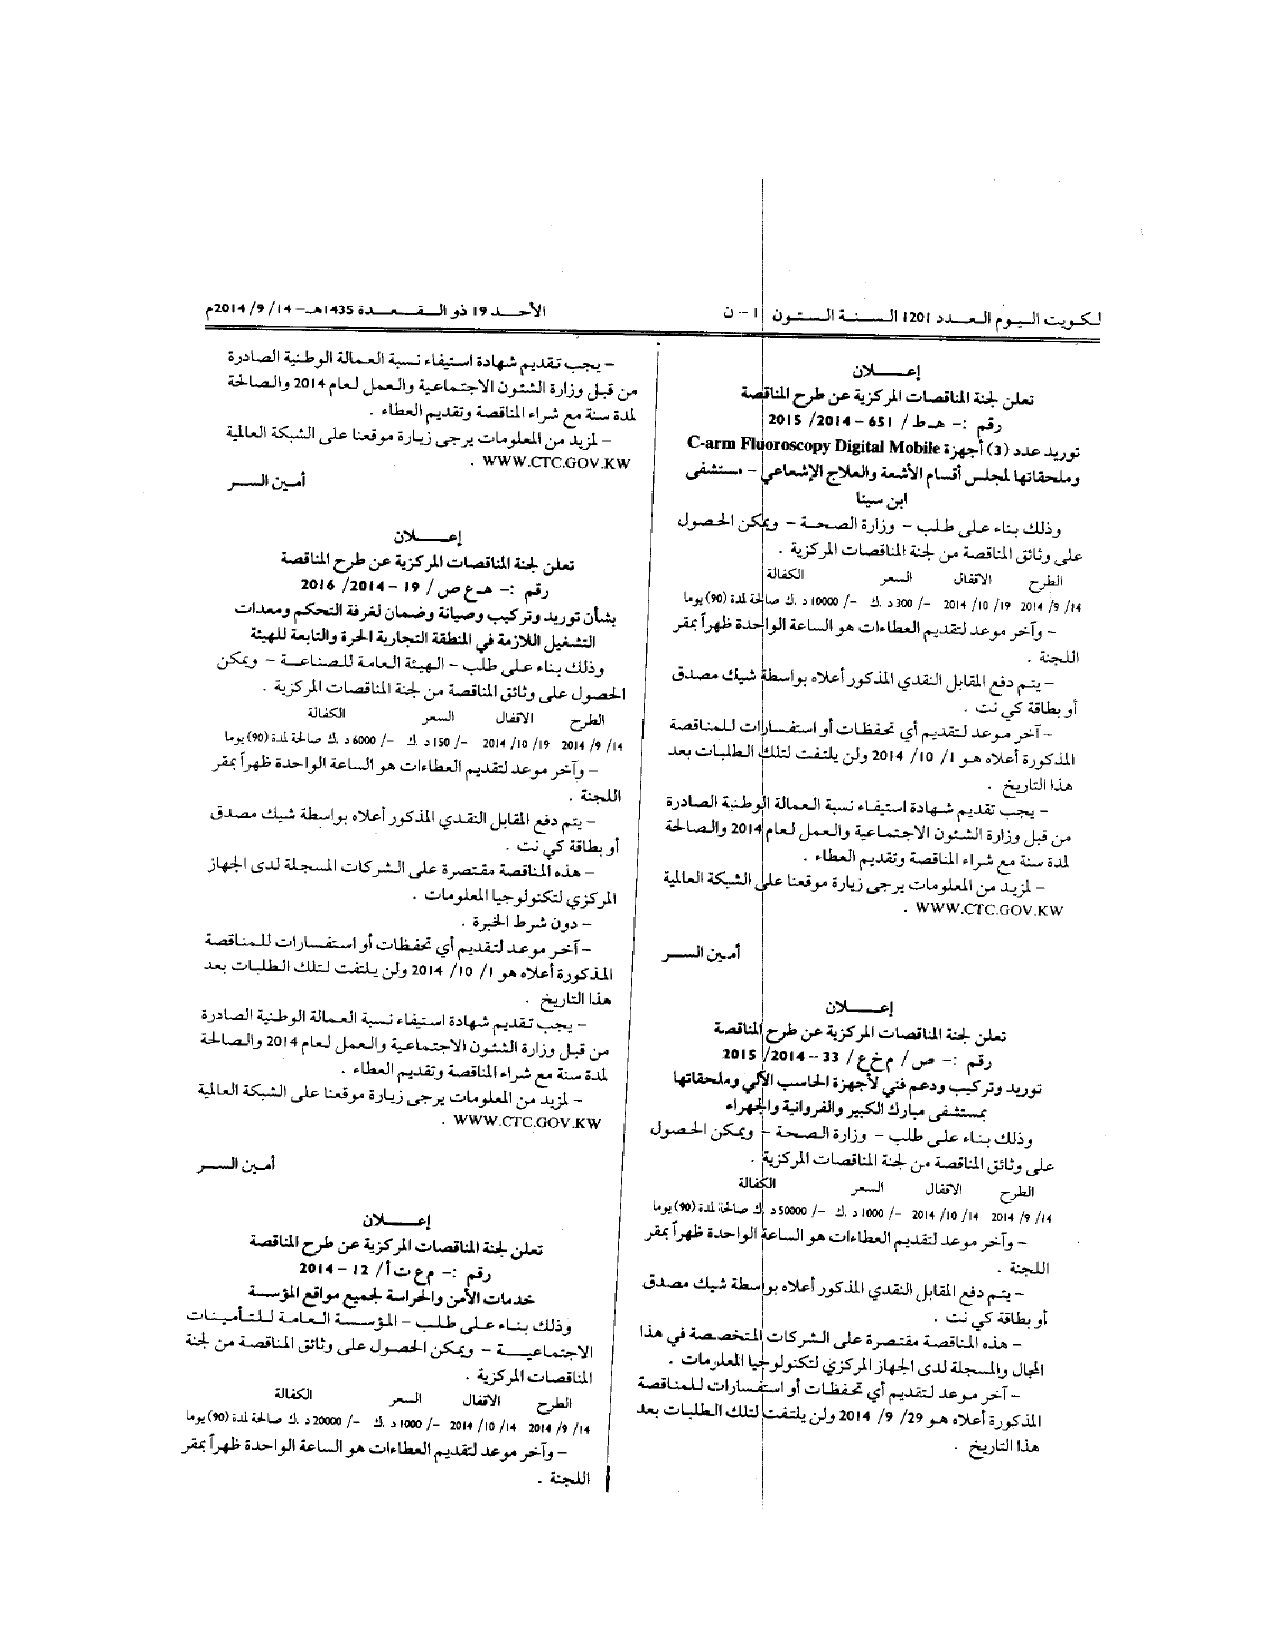 لكويت اليوم العدد 1201 السنة الستون
1 - ن
الأحد 19 ذو القعدة 1435هـ - 14 /9 /2014م
إعـــــلان
تعلن لجنة المناقصات المركزية عن طرح المناقصة
رقم :- هـ ط / 651 - 2014 /2015
توريد عدد (3) أجهزة C-arm Fluoroscopy Digital Mobile
وملحقاتها لمجلس أقسام الأشعة والعلاج الإشعاعي - مستشفى
ابن سينا
وذلك بناء على طلب - وزارة الصحة - ويمكن الحصول
على وثائق المناقصة من لجنة المناقصات المركزية .
الطرح الاقفال السعر الكفالة
14/ 9/ 2014 19/ 10/ 2014 -/ 300 د .ك -/ 10000 د .ك صالحة لمدة (90) يوما
- وآخر موعد لتقديم العطاءات هو الساعة الواحدة ظهراً بمقر
اللجنة .
- يتم دفع المقابل النقدي المذكور أعلاه بواسطة شيك مصدق
أو بطاقة كي نت .
- آخر موعد لتقديم أي تحفظات أو استفسارات للمناقصة
المذكورة أعلاه هو 1/ 10/ 2014 ولن يلتفت لتلك الطلبات بعد
هذا التاريخ .
- يجب تقديم شهادة استيفاء نسبة العمالة الوطنية الصادرة
من قبل وزارة الشئون الاجتماعية والعمل لعام 2014 والصالحة
لمدة سنة مع شراء المناقصة وتقديم العطاء .
- لمزيد من المعلومات يرجى زيارة موقعنا على الشبكة العالمية
WWW.CTC.GOV.KW .
أمين السر
إعـــــلان
تعلن لجنة المناقصات المركزية عن طرح المناقصة
رقم :- ص/ م خ ع / 33 - 2014 /2015
توريد وتركيب ودعم فني لأجهزة الحاسب الآلي وملحقاتها
بمستشفى مبارك الكبير والفروانية والجهراء
وذلك بناء على طلب - وزارة الصحة - ويمكن الحصول
على وثائق المناقصة من لجنة المناقصات المركزية .
الطرح الاقفال السعر الكفالة
14/ 9/ 2014 14/ 10/ 2014 -/ 1000 د .ك -/ 50000 د .ك صالحة لمدة (90) يوما
- وآخر موعد لتقديم العطاءات هو الساعة الواحدة ظهراً بمقر
اللجنة .
- يتم دفع المقابل النقدي المذكور أعلاه بواسطة شيك مصدق
أو بطاقة كي نت .
- هذه المناقصة مقتصرة على الشركات المتخصصة في هذا
المجال والمسجلة لدى الجهاز المركزي لتكنولوجيا المعلومات .
- آخر موعد لتقديم أي تحفظات أو استفسارات للمناقصة
المذكورة أعلاه هو 29/ 9/ 2014 ولن يلتفت لتلك الطلبات بعد
هذا التاريخ .
- يجب تقديم شهادة استيفاء نسبة العمالة الوطنية الصادرة
من قبل وزارة الشئون الاجتماعية والعمل لعام 2014 والصالحة
لمدة سنة مع شراء المناقصة وتقديم العطاء .
- لمزيد من المعلومات يرجى زيارة موقعنا على الشبكة العالمية
WWW.CTC.GOV.KW .
أمين السر
إعـــــلان
تعلن لجنة المناقصات المركزية عن طرح المناقصة
رقم :- هـ ع ص / 19 - 2014 /2016
بشأن توريد وتركيب وصيانة وضمان لغرفة التحكم ومعدات
التشغيل اللازمة في المنطقة التجارية الحرة والتابعة للهيئة
وذلك بناء على طلب - الهيئة العامة للصناعة - ويمكن
الحصول على وثائق المناقصة من لجنة المناقصات المركزية .
الطرح الاقفال السعر الكفالة
14/ 9/ 2014 19/ 10/ 2014 -/ 150 د .ك -/ 6000 د .ك صالحة لمدة (90) يوما
- وآخر موعد لتقديم العطاءات هو الساعة الواحدة ظهراً بمقر
اللجنة .
- يتم دفع المقابل النقدي المذكور أعلاه بواسطة شيك مصدق
أو بطاقة كي نت .
- هذه المناقصة مقتصرة على الشركات المسجلة لدى الجهاز
المركزي لتكنولوجيا المعلومات .
- دون شرط الخبرة .
- آخر موعد لتقديم أي تحفظات أو استفسارات للمناقصة
المذكورة أعلاه هو 1/ 10/ 2014 ولن يلتفت لتلك الطلبات بعد
هذا التاريخ .
- يجب تقديم شهادة استيفاء نسبة العمالة الوطنية الصادرة
من قبل وزارة الشئون الاجتماعية والعمل لعام 2014 والصالحة
لمدة سنة مع شراء المناقصة وتقديم العطاء .
- لمزيد من المعلومات يرجى زيارة موقعنا على الشبكة العالمية
WWW.CTC.GOV.KW .
أمين السر
إعـــــلان
تعلن لجنة المناقصات المركزية عن طرح المناقصة
رقم :- م ع ت أ/ 12 - 2014
خدمات الأمن والحراسة لجميع مواقع المؤسسة
وذلك بناء على طلب - المؤسسة العامة للتأمينات
الاجتماعية - ويمكن الحصول على وثائق المناقصة من لجنة
المناقصات المركزية .
الطرح الاقفال السعر الكفالة
14/ 9/ 2014 14/ 10/ 2014 -/ 1000 د .ك -/ 20000 د .ك صالحة لمدة (90) يوما
- وآخر موعد لتقديم العطاءات هو الساعة الواحدة ظهراً بمقر
اللجنة .